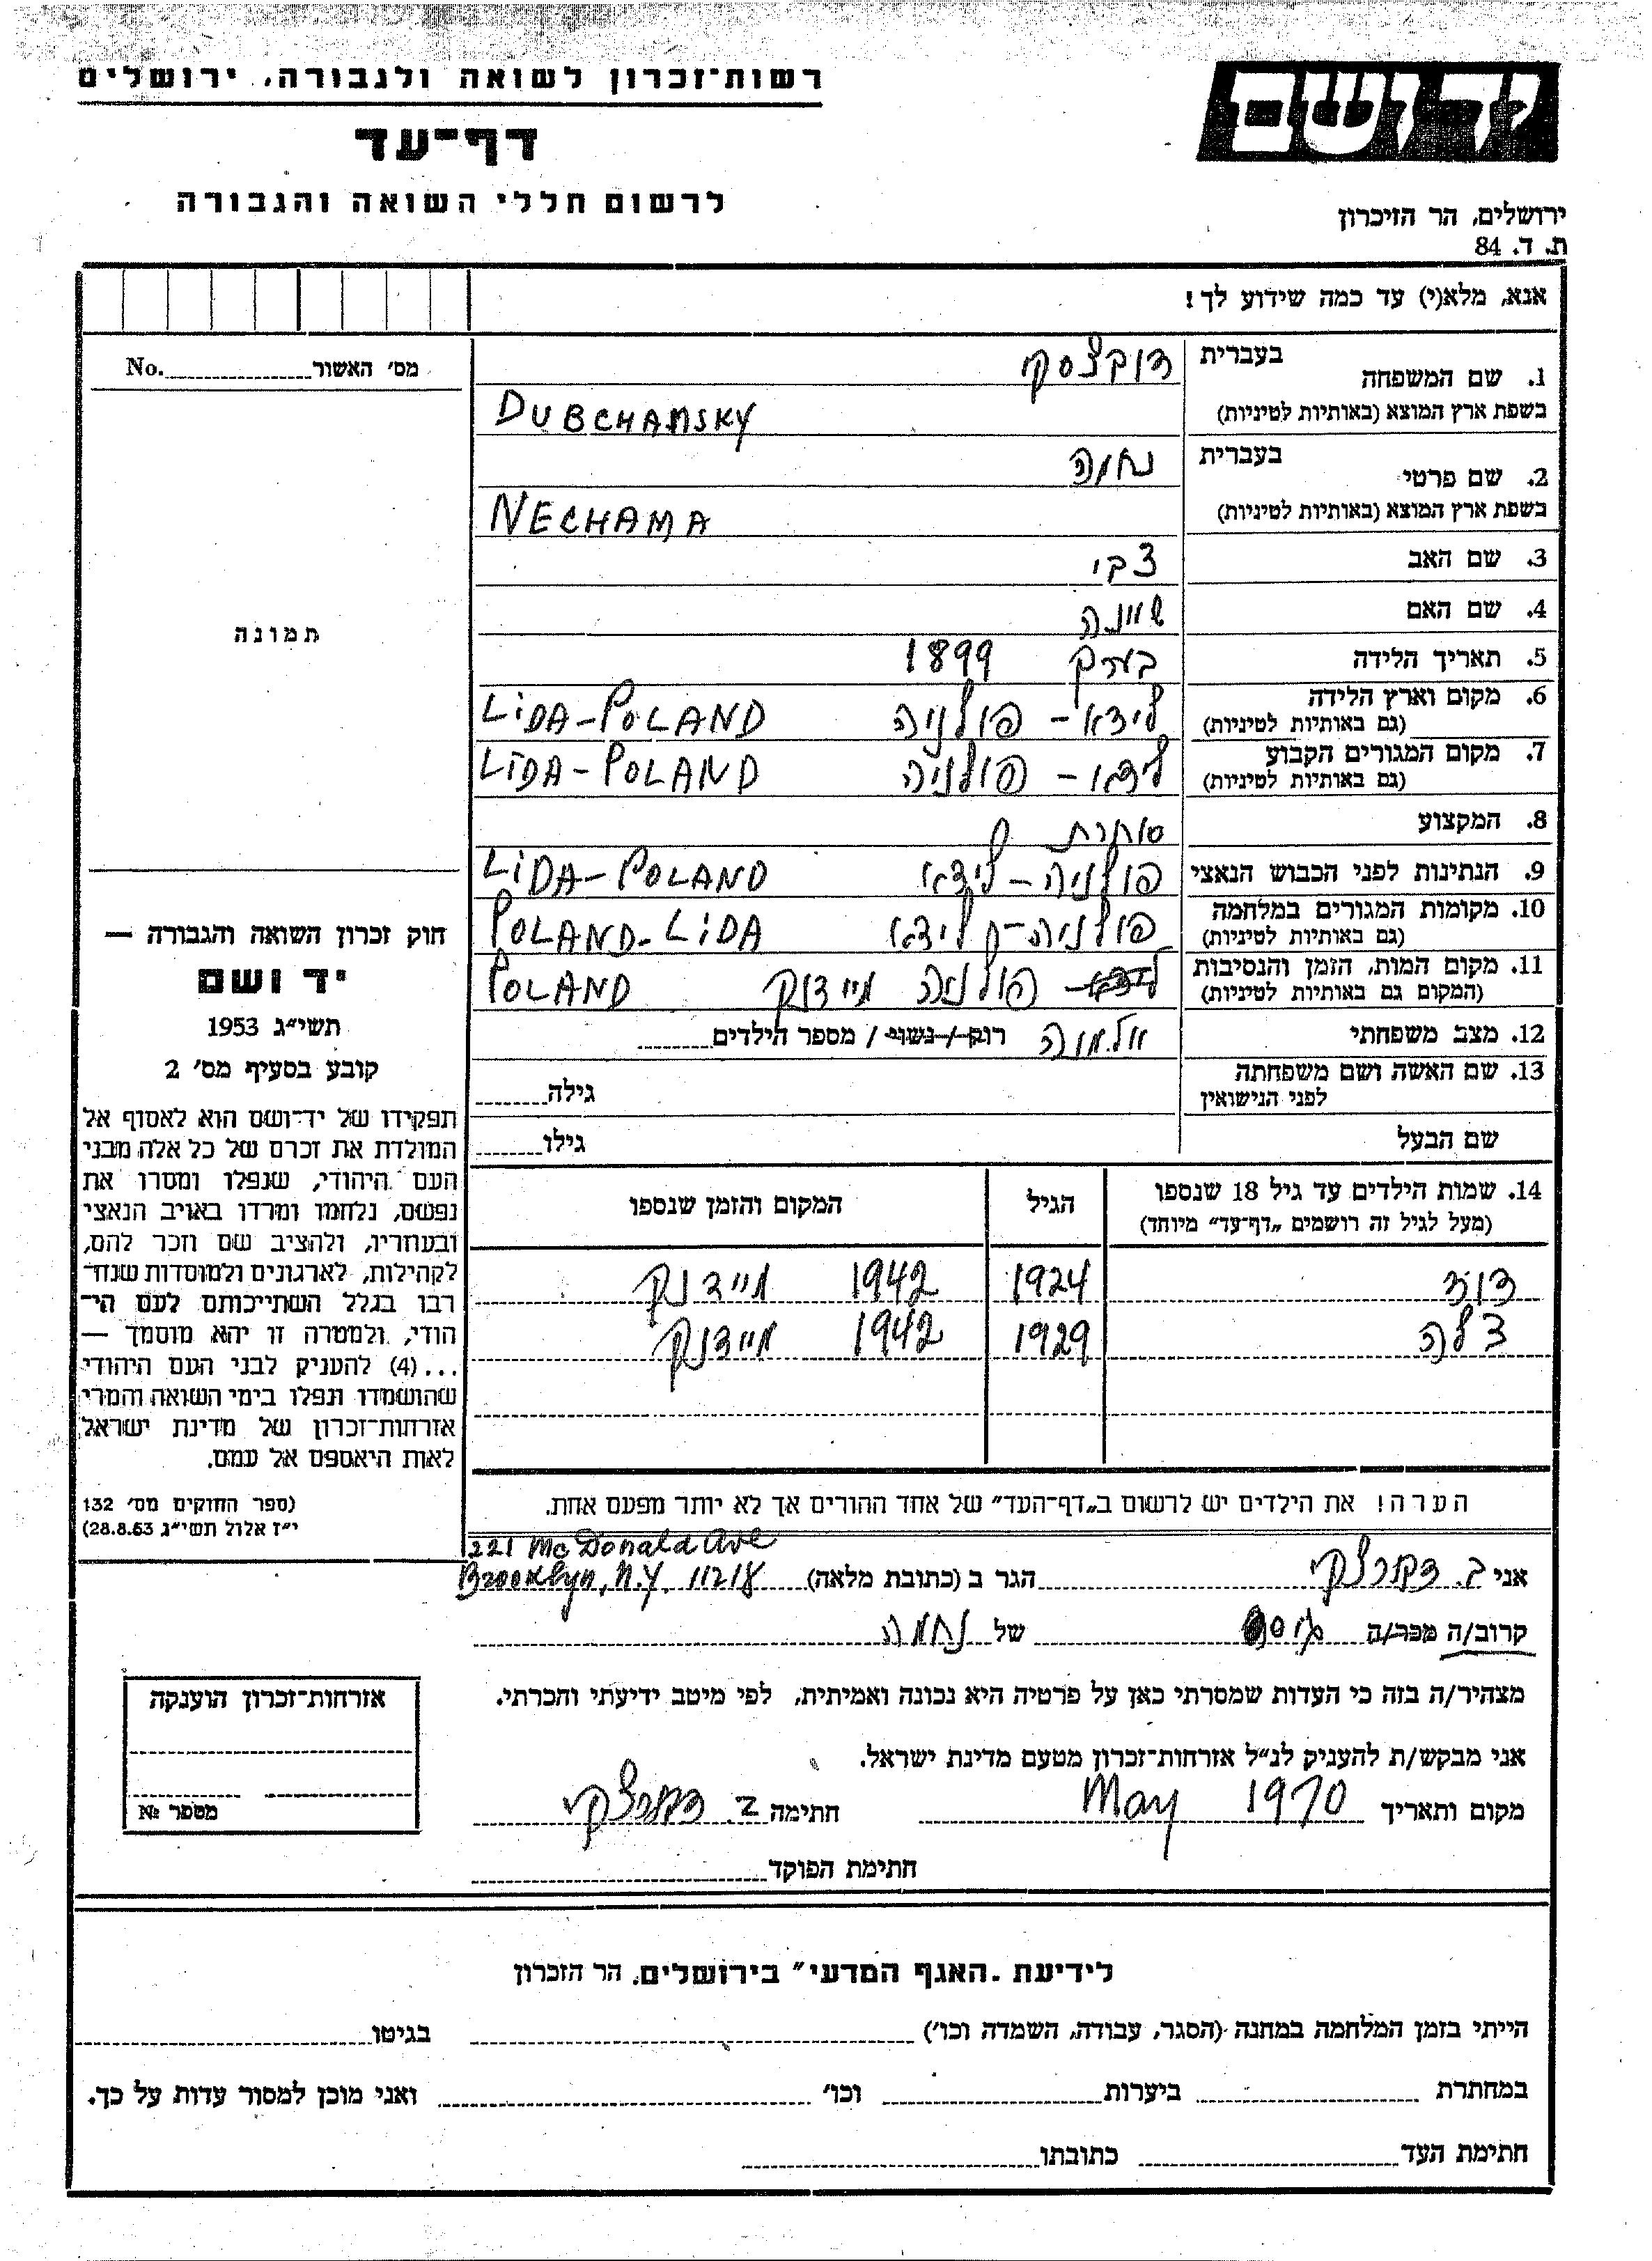 רשות־זכרון לשואה ולגבורה, ירושלים
דף־עד
לרשום חללי השואה והגבורה
יד ושם
ירושלים, הר הזיכרון
ת. ד. 84
אנא, מלא(י) עד כמה שידוע לך!
מס׳ האשור No.
תמונה
1. שם המשפחה
בעברית
בשפת ארץ המוצא (באותיות לטיניות)
DUBCHANSKY
2. שם פרטי
בעברית נחמה
בשפת ארץ המוצא (באותיות לטיניות)
NECHAMA
3. שם האב צבי
4. שם האם
5. תאריך הלידה בערך 1899
6. מקום וארץ הלידה
(גם באותיות לטיניות)
לידא - פולניה LiDA-POLAND
7. מקום המגורים הקבוע
(גם באותיות לטיניות)
לידא - פולניה LiDA-POLAND
8. המקצוע סוחרת
9. הנתינות לפני הכבוש הנאצי פולניה - לידא LiDA-POLAND
10. מקומות המגורים במלחמה
(גם באותיות לטיניות)
פולניה - לידא POLAND-LiDA
11. מקום המות, הזמן והנסיבות
(המקום גם באותיות לטיניות)
לידא - פולניה מיידנק POLAND
12. מצב משפחתי אלמנה רווק / נשוי / מספר הילדים
13. שם האשה ושם משפחתה
לפני הנישואין
גילה
שם הבעל גילו
14. שמות הילדים עד גיל 18 שנספו
(מעל לגיל זה רושמים „דף־עד״ מיוחד)
הגיל
המקום והזמן שנספו
דוד 1924 1942 מיידנק
צלה 1929 1942 מיידנק
הערה! את הילדים יש לרשום ב„דף־העד״ של אחד ההורים אך לא יותר מפעם אחת.
חוק זכרון השואה והגבורה —
יד ושם
תשי״ג 1953
קובע בסעיף מס׳ 2
תפקידו של יד־ושם הוא לאסוף אל
המולדת את זכרם של כל אלה מבני
העם היהודי, שנפלו ומסרו את
נפשם, נלחמו ומרדו באויב הנאצי
ובעוזריו, ולהציב שם וזכר להם,
לקהילות, לארגונים ולמוסדות שנח־
רבו בגלל השתייכותם לעם הי־
הודי, ולמטרה זו יהא מוסמך —
...(4) להעניק לבני העם היהודי
שהושמדו ונפלו בימי השואה והמרי
אזרחות־זכרון של מדינת ישראל
לאות היאספם אל עמם.
(ספר החוקים מס׳ 132
י״ז אלול תשי״ג 28.8.53)
221 McDonald Ave
אני הגר ב (כתובת מלאה) Brooklyn, N.Y. 11218
קרוב/ה מכר/ה גיסה של נחמה
מצהיר/ה בזה כי העדות שמסרתי כאן על פרטיה היא נכונה ואמיתית, לפי מיטב ידיעתי והכרתי.
אני מבקש/ת להעניק לנ״ל אזרחות־זכרון מטעם מדינת ישראל.
מקום ותאריך May 1970 חתימה
חתימת הפוקד
אזרחות־זכרון הוענקה
מספר №
לידיעת „האגף המדעי״ בירושלים, הר הזכרון
הייתי בזמן המלחמה במחנה (הסגר, עבודה, השמדה וכו׳) בגיטו
במחתרת ביערות וכו׳ ואני מוכן למסור עדות על כך.
חתימת העד כתובתו